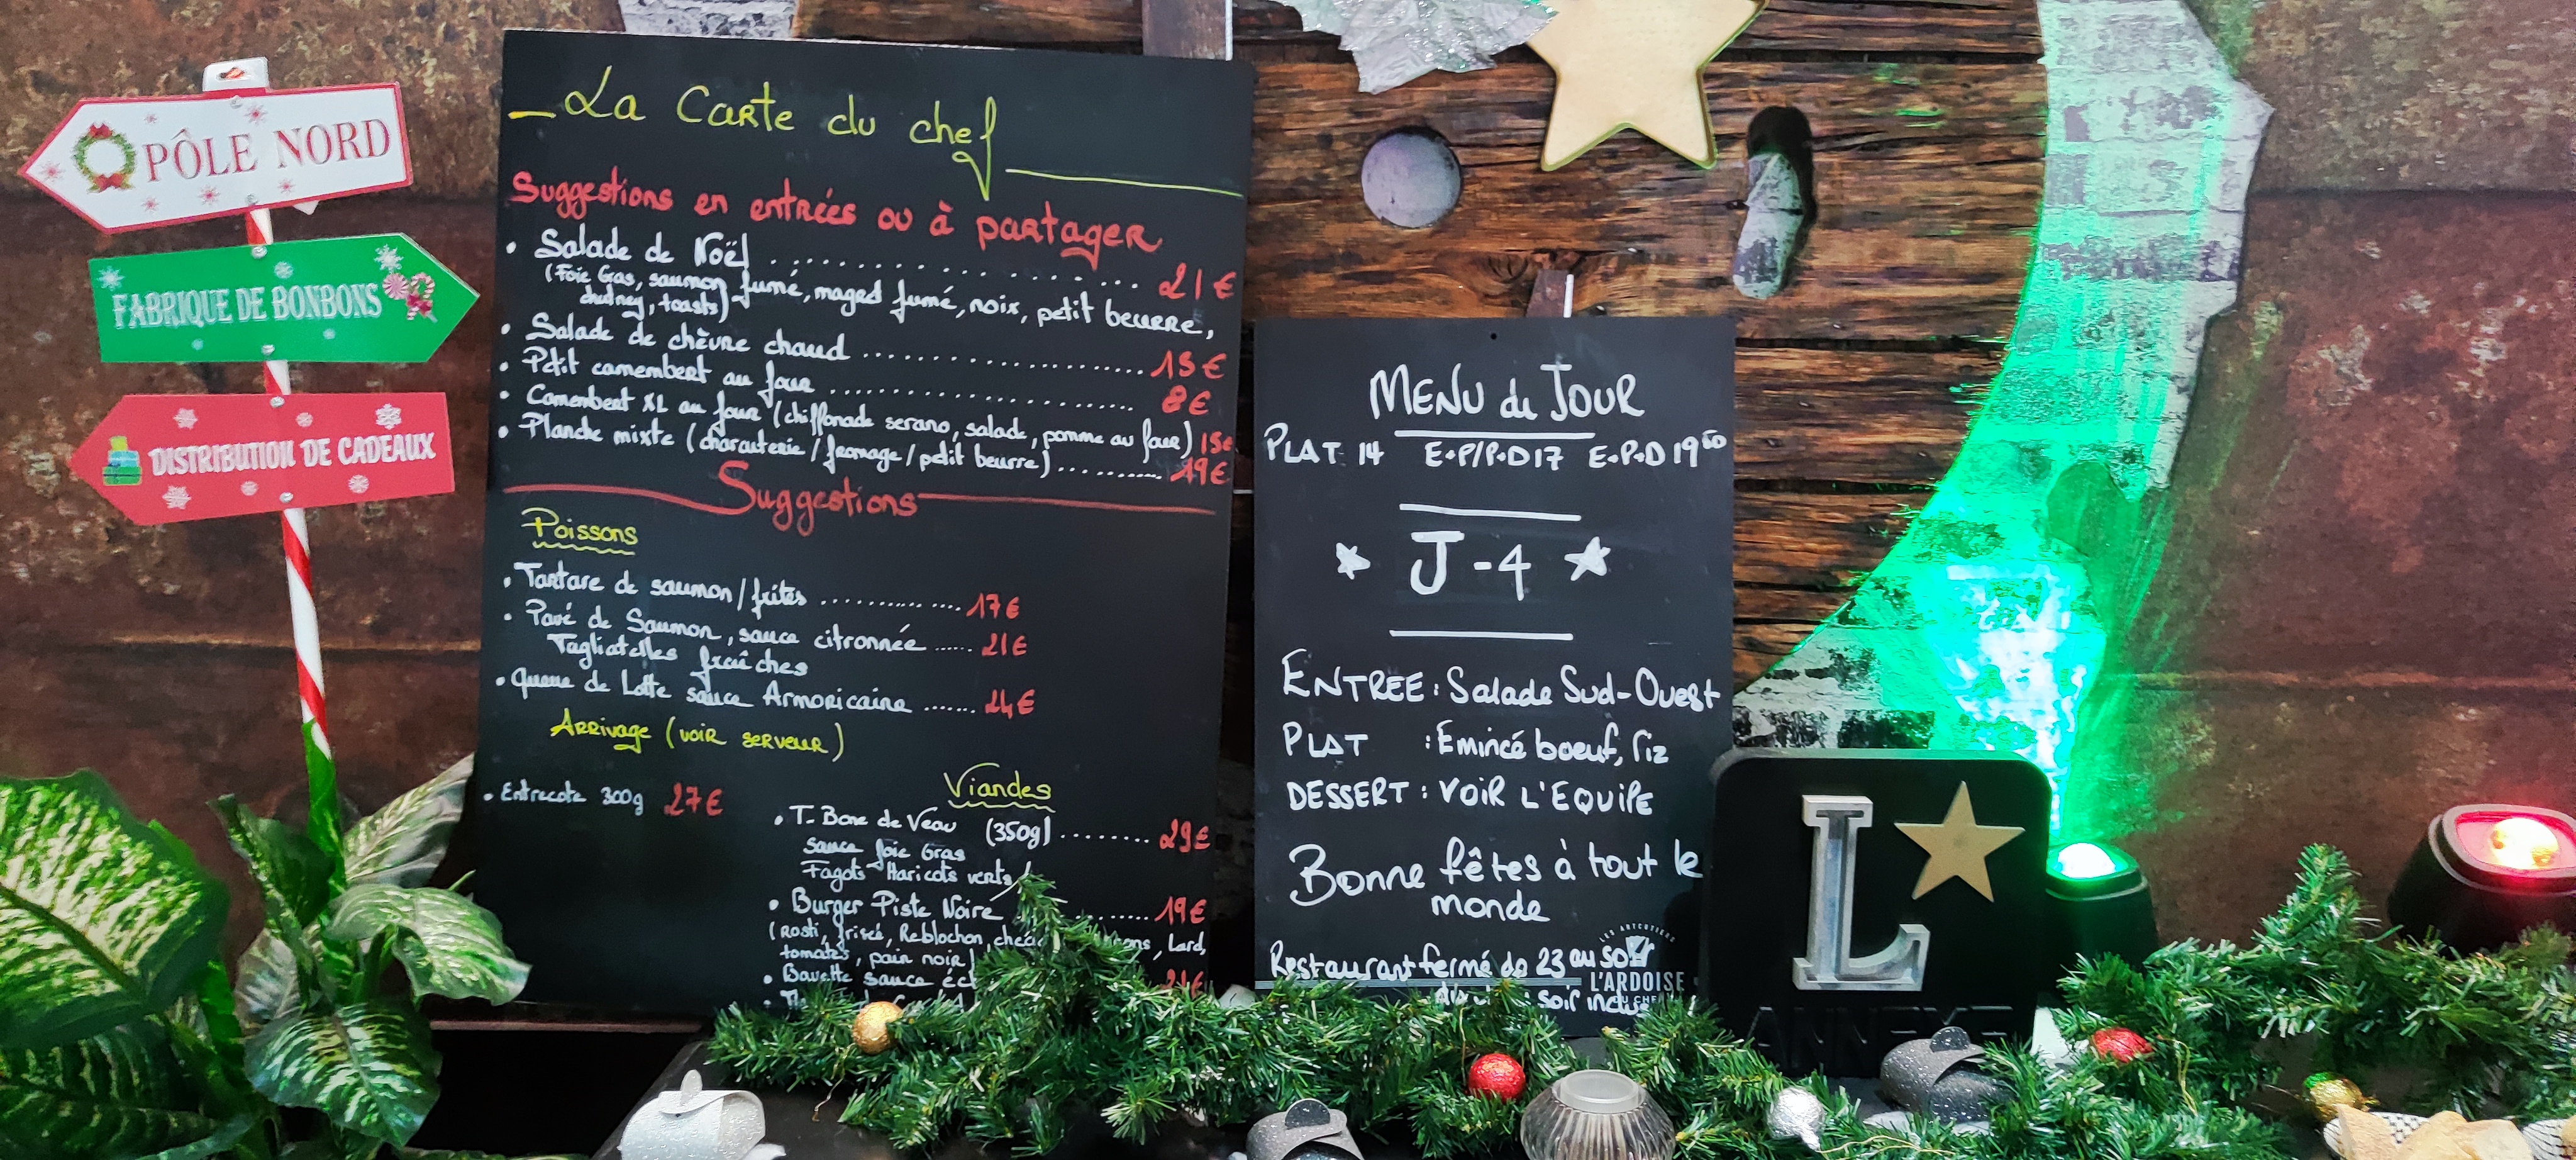 PÔLE NORD
FABRIQUE DE BONBONS
DISTRIBUTION DE CADEAUX
La Carte du chef
Suggestions en entrées ou à partager
• Salade de Noël .................. 21€
(Foie Gras, saumon fumé, magred fumé, noix, petit beurre,
chutney, toasts)
• Salade de chèvre chaud .................. 15€
• Petit camembert au four .................. 8€
• Camembert XL au four (chiffonade serano, salade, pomme au four) 15€
• Planche mixte (charcuterie/fromage/petit beurre) .......... 19€
Suggestions
Poissons
• Tartare de saumon/frites .............. 17€
• Pavé de Saumon, sauce citronnée ...... 21€
Tagliatelles fraîches
• Queue de Lotte sauce Armoricaine ....... 24€
Arrivage (voir serveur)
• Entrecote 300g 27€
Viandes
• T-Bone de Veau (350g) ........ 29€
sauce foie Gras
Fagots Haricots verts
• Burger Piste Noire ...... 19€
(rosti, frisée, Reblochon, Lard,
tomates, pain noir)
• Bavette sauce
MENU du JOUR
PLAT 14 E+P/P+D 17 E+P+D 19⁵⁰
J-4
ENTREE : Salade Sud-Ouest
PLAT : Emincé boeuf, riz
DESSERT : VOIR L'EQUIPE
Bonne fêtes à tout le
monde
Restaurant fermé du 23 au soir
soir inclus
LES ARTCUTIERS
L'ARDOISE
DU CHEF
L
ANNEXE